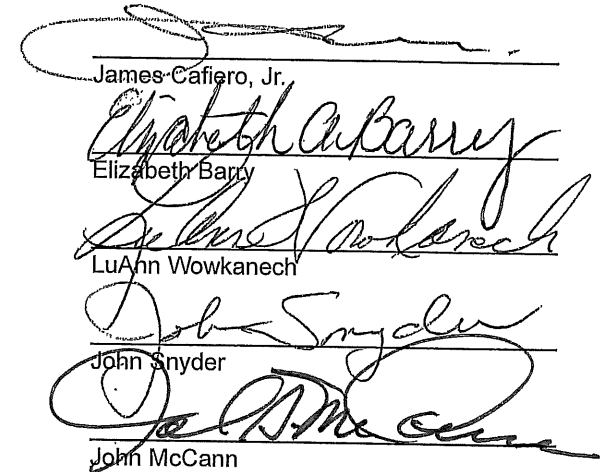 James Cafiero, Jr.
Elizabeth A Barry
Elizabeth Barry
LuAnn Wowkanech
LuAnn Wowkanech
John Snyder
John Snyder
John McCann